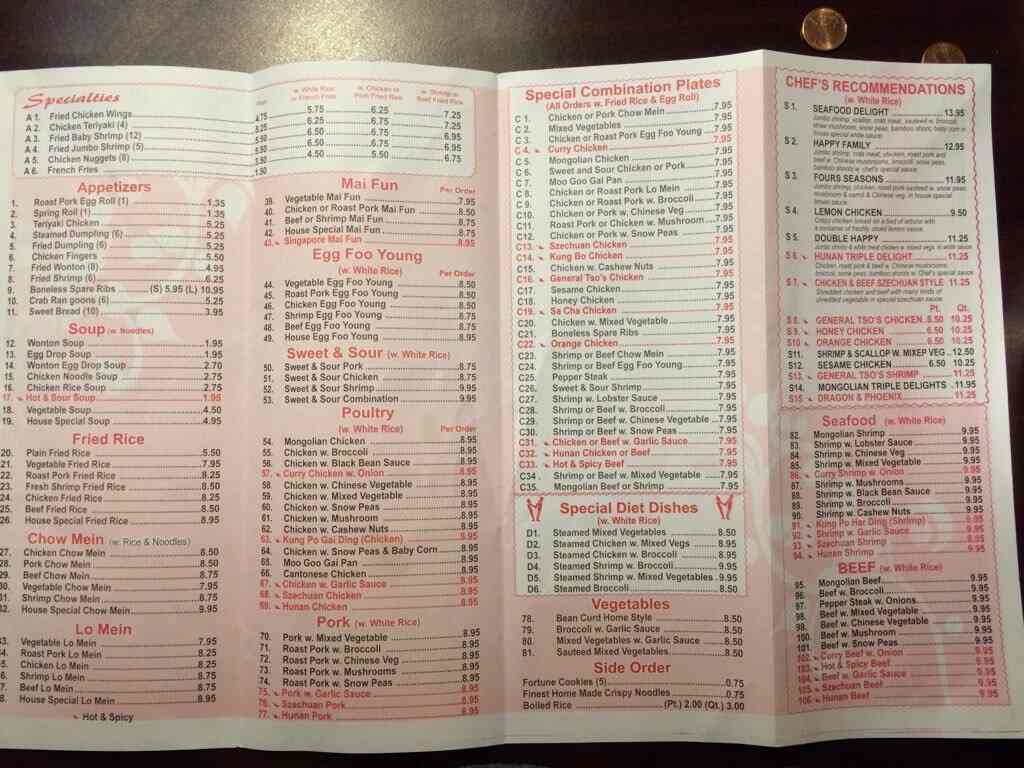 Specialties
w. White Rice
or French Fries
w. Chicken or
Pork Fried Rice
w. Shrimp or
Beef Fried Rice
A 1. Fried Chicken Wings 4.75 5.75 6.25 7.25
A 2. Chicken Teriyaki (4)
A 3. Fried Baby Shrimp (12)
A 4. Fried Jumbo Shrimp (5)
A 5. Chicken Nuggets (8)
A 6. French Fries
Appetizers
1. Roast Pork Egg Roll (1) 1.35
2. Spring Roll (1) 1.35
3. Teriyaki Chicken 5.25
4. Steamed Dumpling (6) 5.25
5. Fried Dumpling (6) 5.25
6. Chicken Fingers 5.50
7. Fried Wonton (8) 4.95
8. Fried Shrimp (6) 5.25
9. Boneless Spare Ribs (S) 5.95 (L) 10.95
10. Crab Ran goons (6) 5.25
11. Sweet Bread (10) 3.95
Soup (w. Noodles)
12. Wonton Soup 1.95
13. Egg Drop Soup 1.95
14. Wonton Egg Drop Soup 2.70
15. Chicken Noodle Soup 2.75
16. Chicken Rice Soup 2.75
17. Hot & Sour Soup 1.95
18. Vegetable Soup 4.50
19. House Special Soup 4.95
Fried Rice
20. Plain Fried Rice 5.50
21. Vegetable Fried Rice 7.95
22. Roast Pork Fried Rice 8.25
23. Fresh Shrimp Fried Rice 8.50
24. Chicken Fried Rice 8.25
25. Beef Fried Rice 8.50
26. House Special Fried Rice 8.95
Chow Mein (w. Rice & Noodles)
27. Chicken Chow Mein 8.50
28. Pork Chow Mein 8.50
29. Beef Chow Mein 8.75
30. Vegetable Chow Mein 7.95
31. Shrimp Chow Mein 8.75
32. House Special Chow Mein 9.95
Lo Mein
33. Vegetable Lo Mein 7.95
34. Roast Pork Lo Mein 8.25
Chicken Lo Mein 8.25
Shrimp Lo Mein 8.75
Beef Lo Mein 8.75
House Special Lo Mein 8.95
Hot & Spicy
Mai Fun Per Order
39. Vegetable Mai Fun 7.95
40. Chicken or Roast Pork Mai Fun 8.50
41. Beef or Shrimp Mai Fun 8.75
42. House Special Mai Fun 8.95
43. Singapore Mai Fun 8.95
Egg Foo Young
(w. White Rice) Per Order
44. Vegetable Egg Foo Young 8.50
45. Roast Pork Egg Foo Young 8.75
46. Chicken Egg Foo Young 8.50
47. Shrimp Egg Foo Young 8.75
48. Beef Egg Foo Young 8.75
49. House Egg Foo Young 8.95
Sweet & Sour (w. White Rice)
50. Sweet & Sour Pork 8.75
51. Sweet & Sour Chicken 8.75
52. Sweet & Sour Shrimp 9.95
53. Sweet & Sour Combination 9.95
Poultry
(w. White Rice) Per Order
54. Mongolian Chicken 8.95
55. Chicken w. Broccoli 8.95
56. Chicken w. Black Bean Sauce 8.95
57. Curry Chicken w. Onion 8.95
58. Chicken w. Chinese Vegetable 8.95
59. Chicken w. Mixed Vegetable 8.95
60. Chicken w. Snow Peas 8.95
61. Chicken w. Mushroom 8.95
62. Chicken w. Cashew Nuts 8.95
63. Kung Po Gai Ding (Chicken) 8.95
64. Chicken w. Snow Peas & Baby Corn 8.95
65. Moo Goo Gai Pan 8.95
66. Cantonese Chicken 8.95
67. Chicken w. Garlic Sauce 8.95
68. Szechuan Chicken 8.95
69. Hunan Chicken 8.95
Pork (w. White Rice)
70. Pork w. Mixed Vegetable 8.95
71. Roast Pork w. Broccoli 8.95
72. Roast Pork w. Chinese Veg 8.95
73. Roast Pork w. Mushrooms 8.95
74. Roast Pork w. Snow Peas 8.95
75. Pork w. Garlic Sauce 8.95
76. Szechuan Pork 8.95
77. Hunan Pork 8.95
Special Combination Plates
(All Orders w. Fried Rice & Egg Roll)
C 1. Chicken or Pork Chow Mein 7.95
C 2. Mixed Vegetables 7.95
C 3. Chicken or Roast Pork Egg Foo Young 7.95
C 4. Curry Chicken 7.95
C 5. Mongolian Chicken 7.95
C 6. Sweet and Sour Chicken or Pork 7.95
C 7. Moo Goo Gai Pan 7.95
C 8. Chicken or Roast Pork Lo Mein 7.95
C9. Chicken or Roast Pork w. Broccoli 7.95
C10. Chicken or Pork w. Chinese Veg 7.95
C11. Roast Pork or Chicken w. Mushroom 7.95
C12. Chicken or Pork w. Snow Peas 7.95
C13. Szechuan Chicken 7.95
C14. Kung Bo Chicken 7.95
C15. Chicken w. Cashew Nuts 7.95
C16. General Tso's Chicken 7.95
C17. Sesame Chicken 7.95
C18. Honey Chicken 7.95
C19. Sa Cha Chicken 7.95
C20. Chicken w. Mixed Vegetable 7.95
C21. Boneless Spare Ribs 7.95
C22. Orange Chicken 7.95
C23. Shrimp or Beef Chow Mein 7.95
C24. Shrimp or Beef Egg Foo Young 7.95
C25. Pepper Steak 7.95
C26. Sweet & Sour Shrimp 7.95
C27. Shrimp w. Lobster Sauce 7.95
C28. Shrimp or Beef w. Broccoli 7.95
C29. Shrimp or Beef w. Chinese Vegetable 7.95
C30. Shrimp or Beef w. Snow Peas 7.95
C31. Chicken or Beef w. Garlic Sauce 7.95
C32. Hunan Chicken or Beef 7.95
C33. Hot & Spicy Beef 7.95
C34. Shrimp or Beef w. Mixed Vegetable 7.95
C35. Mongolian Beef or Shrimp 7.95
Special Diet Dishes
(w. White Rice)
D1. Steamed Mixed Vegetables 8.50
D2. Steamed Chicken w. Mixed Vegs 8.95
D3. Steamed Chicken w. Broccoli 8.95
D4. Steamed Shrimp w. Broccoli 9.95
D5. Steamed Shrimp w. Mixed Vegetables 9.95
D6. Steamed Broccoli 8.50
Vegetables
78. Bean Curd Home Style 8.50
79. Broccoli w. Garlic Sauce 8.50
80. Mixed Vegetables w. Garlic Sauce 8.50
81. Sauteed Mixed Vegetables 8.50
Side Order
Fortune Cookies (5) 0.75
Finest Home Made Crispy Noodles 0.75
Boiled Rice (Pt.) 2.00 (Qt.) 3.00
CHEF'S RECOMMENDATIONS
(w. White Rice)
S 1. SEAFOOD DELIGHT 13.95
S 2. HAPPY FAMILY 12.95
S 3. FOURS SEASONS 11.95
S 4. LEMON CHICKEN 9.50
Crispy chicken breast on a bed of lettuce with
a container of freshly sliced lemon sauce.
S 5. DOUBLE HAPPY 11.25
Jumbo shrimp & white meat chicken w. mixed vegs. in white sauce
S 6. HUNAN TRIPLE DELIGHT 11.25
Chicken, roast pork & beef w. Chinese mushrooms,
broccoli, snow peas, bamboo shoots w. Chef's special sauce
S 7. CHICKEN & BEEF SZECHUAN STYLE 11.25
Shredded chicken and beef with many kinds of
shredded vegetable in special szechuan sauce
Pt. Qt.
S 8. GENERAL TSO'S CHICKEN 6.50 10.25
S 9. HONEY CHICKEN 6.50 10.25
S10 ORANGE CHICKEN 6.50 10.25
S11. SHRIMP & SCALLOP W. MIXEP VEG 12.50
S12. SESAME CHICKEN 6.50 10.25
S13. GENERAL TSO'S SHRIMP 11.25
S14. MONGOLIAN TRIPLE DELIGHTS 11.95
S15. DRAGON & PHOENIX 11.25
Seafood (w. White Rice)
82. Mongolian Shrimp 9.95
83. Shrimp w. Lobster Sauce 9.95
84. Shrimp w. Chinese Veg 9.95
85. Shrimp w. Mixed Vegetable 9.95
86. Curry Shrimp w. Onion 9.95
87. Shrimp w. Mushrooms 9.95
88. Shrimp w. Black Bean Sauce 9.95
89. Shrimp w. Broccoli 9.95
90. Shrimp w. Cashew Nuts 9.95
91. Kung Po Har Ding (Shrimp) 9.95
92. Shrimp w. Garlic Sauce 9.95
93. Szechuan Shrimp 9.95
94. Hunan Shrimp 9.95
BEEF (w. White Rice)
95. Mongolian Beef 9.95
96. Beef w. Broccoli 9.95
97. Pepper Steak w. Onions 9.95
98. Beef w. Mixed Vegetable 9.95
Beef w. Chinese Vegetable 9.95
100. Beef w. Mushroom 9.95
101. Beef w. Snow Peas 9.95
102. Curry Beef w. Onion 9.95
103. Hot & Spicy Beef 9.95
104. Beef w. Garlic Sauce 9.95
105. Szechuan Beef 9.95
106. Hunan Beef 9.95